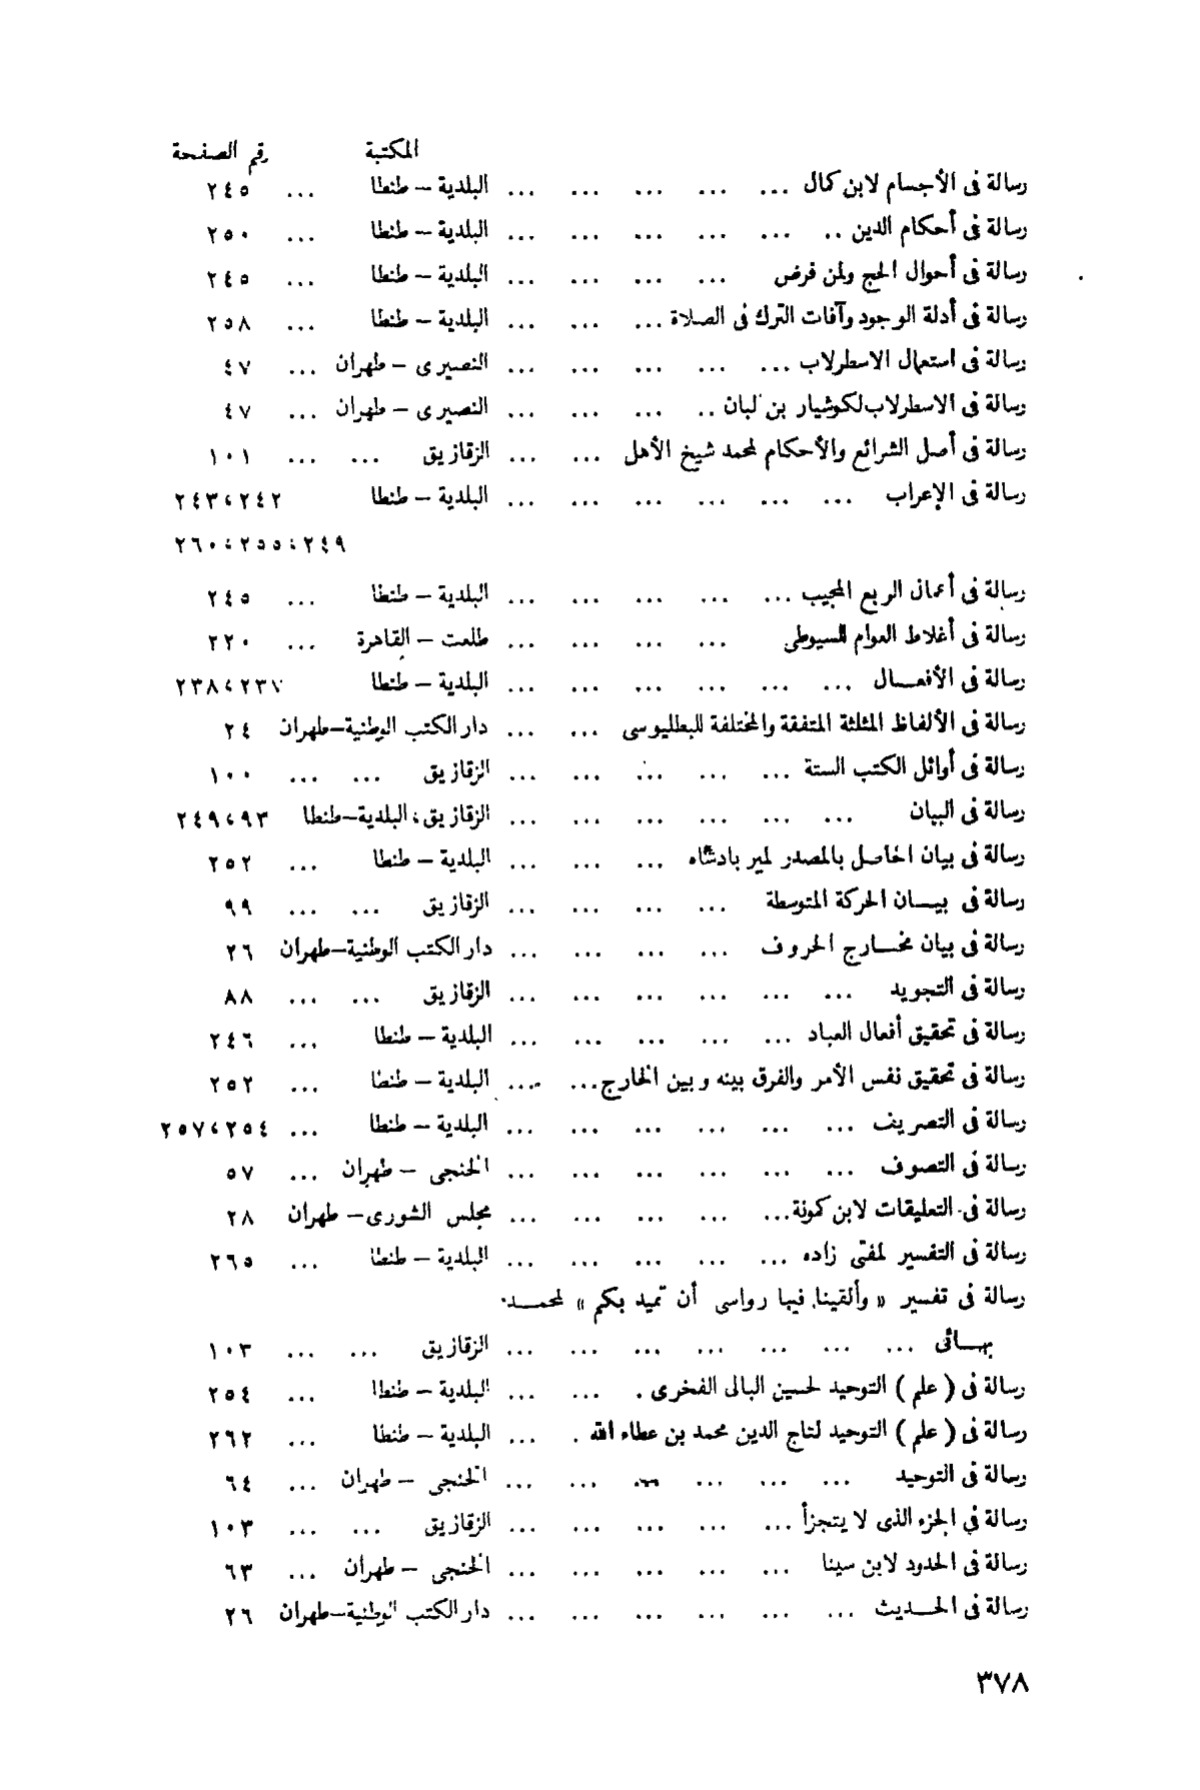 المكتبة رقم الصفحة
رسالة فى الأجسام لابن كمال ... ... ... ... ... البلدية – طنطا ... ٢٤٥
رسالة فى أحكام الدين .. ... ... ... ... ... البلدية – طنطا ... ٢٥٠
رسالة فى أحوال الحج ولمن فرض ... ... ... ... البلدية – طنطا ... ٢٤٥
رسالة فى أدلة الوجود وآفات الترك فى الصلاة ... ... ... البلدية – طنطا ... ٢٥٨
رسالة فى استعمال الاسطرلاب ... ... ... ... ... النصيرى – طهران ... ٤٧
رسالة فى الاسطرلاب لكوشيار بن لبان .. ... ... ... النصيرى – طهران ... ٤٧
رسالة فى أصل الشرائع والأحكام لمحمد شيخ الأهل ... ... ... الزقازيق ... ... ١٠١
رسالة فى الإعراب ... ... ... ... ... ... البلدية – طنطا ٢٤٣،٢٤٢
٢٦٠،٢٥٥،٢٤٩
رسالة فى أعمال الربع المجيب ... ... ... ... ... البلدية – طنطا ... ٢٤٥
رسالة فى أغلاط العوام للسيوطى ... ... ... ... طلعت – القاهرة ... ٢٢٠
رسالة فى الأفعـــال ... ... ... ... ... ... البلدية – طنطا ٢٣٨،٢٣٧
رسالة فى الألفاظ المثلثة المتفقة والمختلفة للبطليوسى ... ... ... دار الكتب الوطنية–طهران ٢٤
رسالة فى أوائل الكتب الستة ... ... ... ... ... الزقازيق ... ... ١٠٠
رسالة فى البيان ... ... ... ... ... ... الزقازيق، البلدية–طنطا ٢٤٩،٩٣
رسالة فى بيان الحاصل بالمصدر لمير بادشاه ... ... ... البلدية – طنطا ... ٢٥٢
رسالة فى بيــان الحركة المتوسطة ... ... ... ... الزقازيق ... ... ٩٩
رسالة فى بيان مخــارج الحروف ... ... ... ... دار الكتب الوطنية–طهران ٢٦
رسالة فى التجويد ... ... ... ... ... ... الزقازيق ... ... ٨٨
رسالة فى تحقيق أفعال العباد ... ... ... ... ... البلدية – طنطا ... ٢٤٦
رسالة فى تحقيق نفس الأمر والفرق بينه وبين الخارج... ... ... البلدية – طنطا ... ٢٥٢
رسالة فى التصريف ... ... ... ... ... ... البلدية – طنطا ... ٢٥٧،٢٥٤
رسالة فى التصوف ... ... ... ... ... ... الخنجى – طهران ... ٥٧
رسالة فى التعليقات لابن كمونة... ... ... ... ... مجلس الشورى– طهران ٢٨
رسالة فى التفسير لمفتى زاده ... ... ... ... ... البلدية – طنطا ... ٢٦٥
رسالة فى تفسير « وألقينا فيها رواسى أن تميد بكم » لمحمــد
بهــائى ... ... ... ... ... ... ... الزقازيق ... ... ١٠٣
رسالة فى ( علم ) التوحيد لحسين البالى الفخرى . ... ... البلدية – طنطا ... ٢٥٤
رسالة فى ( علم ) التوحيد لتاج الدين محمد بن عطاء الله . ... البلدية – طنطا ... ٢٦٢
رسالة فى التوحيد ... ... ... ... ... ... الخنجى – طهران ... ٦٤
رسالة فى الجزء الذى لا يتجزأ ... ... ... ... ... الزقازيق ... ... ١٠٣
رسالة فى الحدود لابن سينا ... ... ... ... ... الخنجى – طهران ... ٦٣
رسالة فى الحــديث ... ... ... ... ... ... دار الكتب الوطنية–طهران ٢٦
٣٧٨